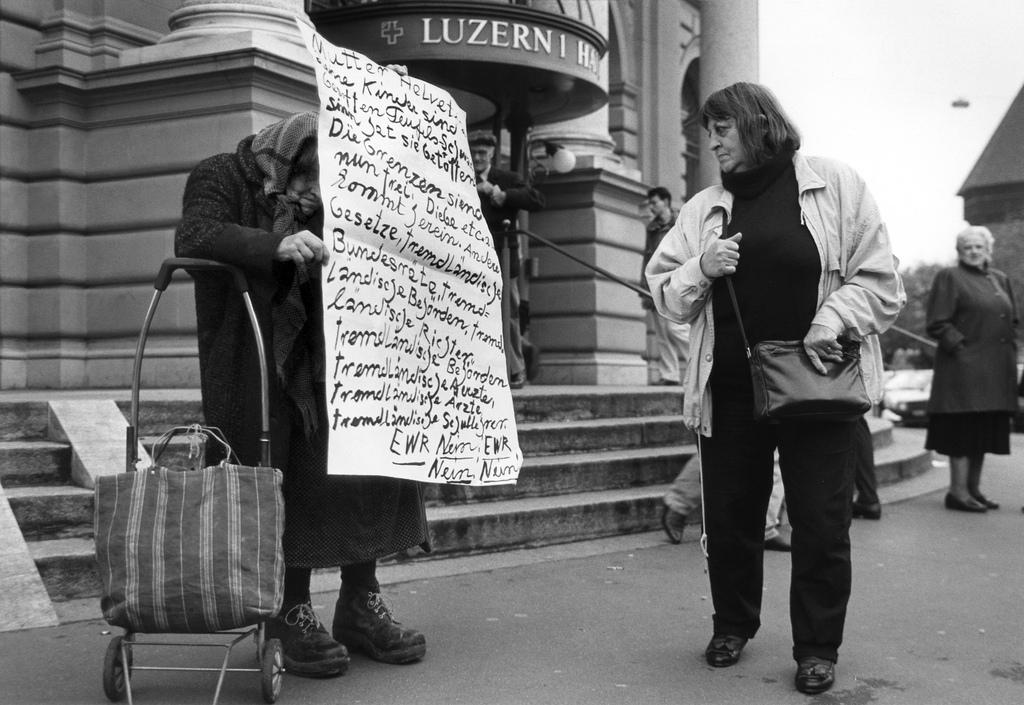 LUZERN 1 HA
Mutter Helvet
Kinder sind
Teufels
hat sie getoffen
Die Grenzen siend
nun frei, Diebe etc.
kommt herein, Andere
Gesetze, fremdländische
Bundesräte, fremd=
ländische Behörden, fremd
ländische Richter,
fremdländische Behörden
fremdländische Aerzte,
fremdländische Arzte,
fremdländische Schullehrer.
EWR Nein, EWR
Nein, Nein